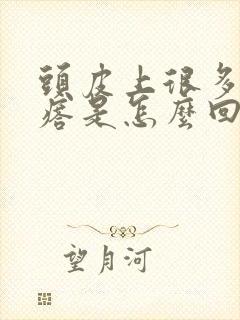 頭皮上很多
痞是怎麼回
望月河